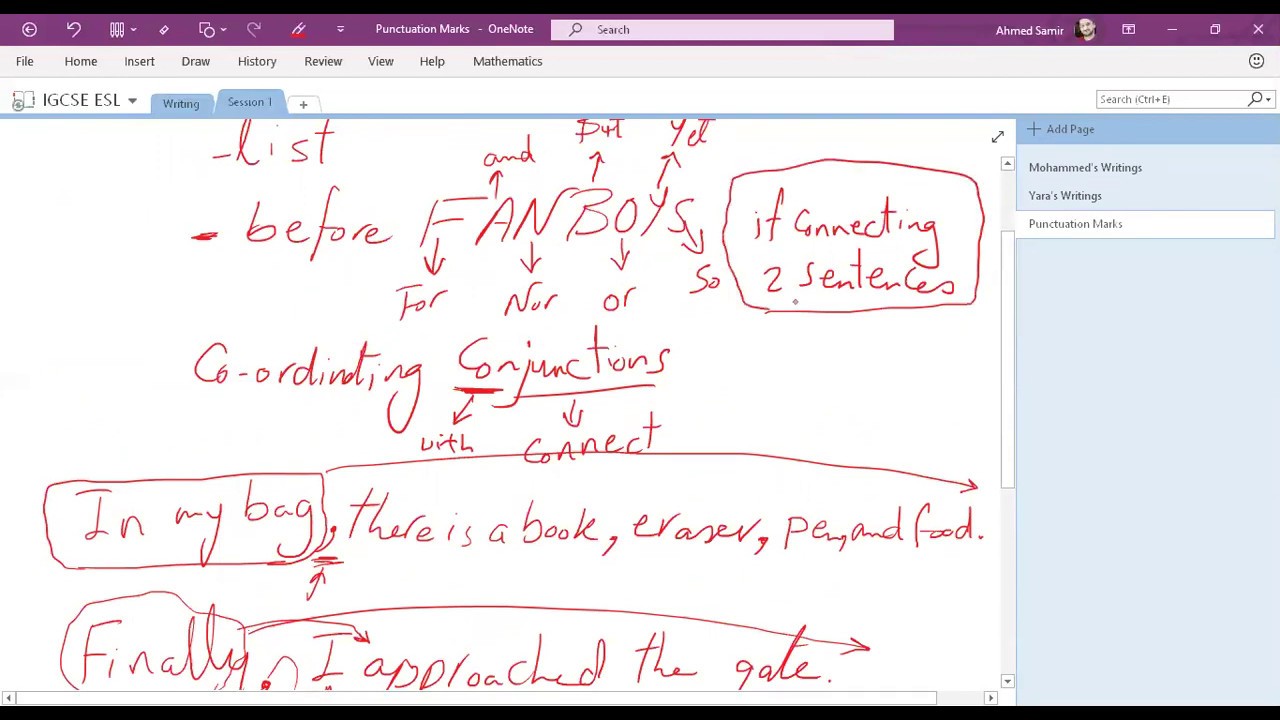 Punctuation Marks - OneNote
Search
Ahmed Samir
File Home Insert Draw History Review View Help Mathematics
IGCSE ESL
Writing
Session 1
Search (Ctrl+E)
Add Page
Mohammed's Writings
Yara's Writings
Punctuation Marks
- list
and But Yet
- before FANBOYS
For Nor or So
if Connecting
2 Sentences
Co-ordinating Conjunctions
with Connect
In my bag, there is a book, eraser, pen, and food.
Finally, I approached the gate.